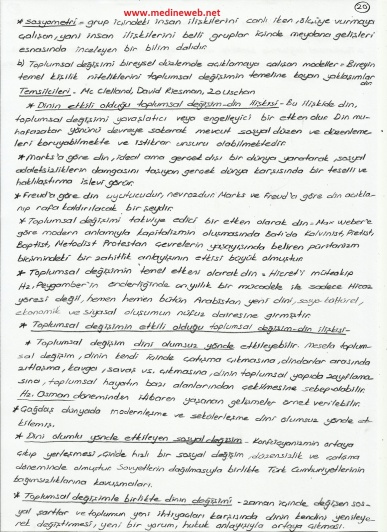 www.medineweb.net
20
* Sosyometri = grup içindeki insan ilişkilerini canlı iken, ölçüye vurmaya
çalışan, yani insan ilişkilerini belli gruplar içinde meydana gelişleri
esnasında inceleyen bir bilim dalıdır.
b) Toplumsal değişimi bireysel düzlemde açıklamaya çalışan modeller = Bireyin
temel kişilik niteliklerini toplumsal değişimin temeline koyan yaklaşımlar
dır.
Temsilcileri - Mc Clelland, David Riesman,
* Dinin etkili olduğu toplumsal değişim-din ilişkisi - Bu ilişkide din,
toplumsal değişimi yavaşlatıcı veya engelleyici bir etken olur. Din mu-
hafazakar yönünü devreye sokarak mevcut sosyal düzen ve düzenleme-
leri koruyabilmekte ve istikrar unsuru olabilmektedir.
* Marks'a göre din, ideal ama gerçek dışı bir dünya yaratarak, sosyal
adaletsizliklerin damgasını taşıyan gerçek dünya karşısında bir teselli ve
haklılaştırma işlevi görür.
* Freud'a göre din uyutucudur, nevrozdur. Marks ve Freud'a göre din açıkla-
nıp rafa kaldırılacak bir şeydir.
* Toplumsal değişimi takviye edici bir etken olarak din = Max weber'e
göre modern anlamıyla kapitalizmin oluşmasında batı'da Kalvinist, Pietist,
Baptist, Metodist Protestan çevrelerin yaşayışında beliren püritanizm
biçimindeki bir zahitlik anlayışının etkisi büyük olmuştur.
* Toplumsal değişimin temel etkeni olarak din = Hicret'i müteakip
Hz. Peygamber'in önderliğinde on yıllık bir mücadele ile sadece Hicaz
yöresi değil, hemen hemen bütün Arabistan yeni dini, sosyo-kültürel,
ekonomik ve siyasal oluşumun nüfuz dairesine girmiştir.
* Toplumsal değişimin etkili olduğu toplumsal değişim-din ilişkisi -
* Toplumsal değişim dini olumsuz yönde etkileyebilir. Mesela toplum-
sal değişim, dinin kendi içinde çatışma çıkmasına, dindarlar arasında
zıtlaşma, kavga, savaş vs. çıkmasına, dinin toplumsal yapıda zayıflama
sına, toplumsal hayatın bazı alanlarından çekilmesine sebep olabilir.
Hz. Osman döneminden itibaren yaşanan gelişmeler örnek verilebilir.
* Çağdaş dünyada modernleşme ve sekülerleşme dini olumsuz yönde et-
kilemiş.
* Dini olumlu yönde etkileyen sosyal değişim - Konfüçyanizmin ortaya
çıkıp yerleşmesi, Çinde hızlı bir sosyal değişim, düzensizlik ve çatışma
döneminde olmuştur. Sovyetlerin dağılmasıyla birlikte Türk Cumhuriyetlerinin
bağımsızlıklarına kavuşmaları.
* Toplumsal değişimle birlikte dinin değişimi - zaman içinde değişen sos-
yal şartlar ve toplumun yeni ihtiyaçları karşısında dinin kendini yenileye-
rek değiştirmesi, yeni bir yorum, hukuk anlayışıyla ortaya çıkması.